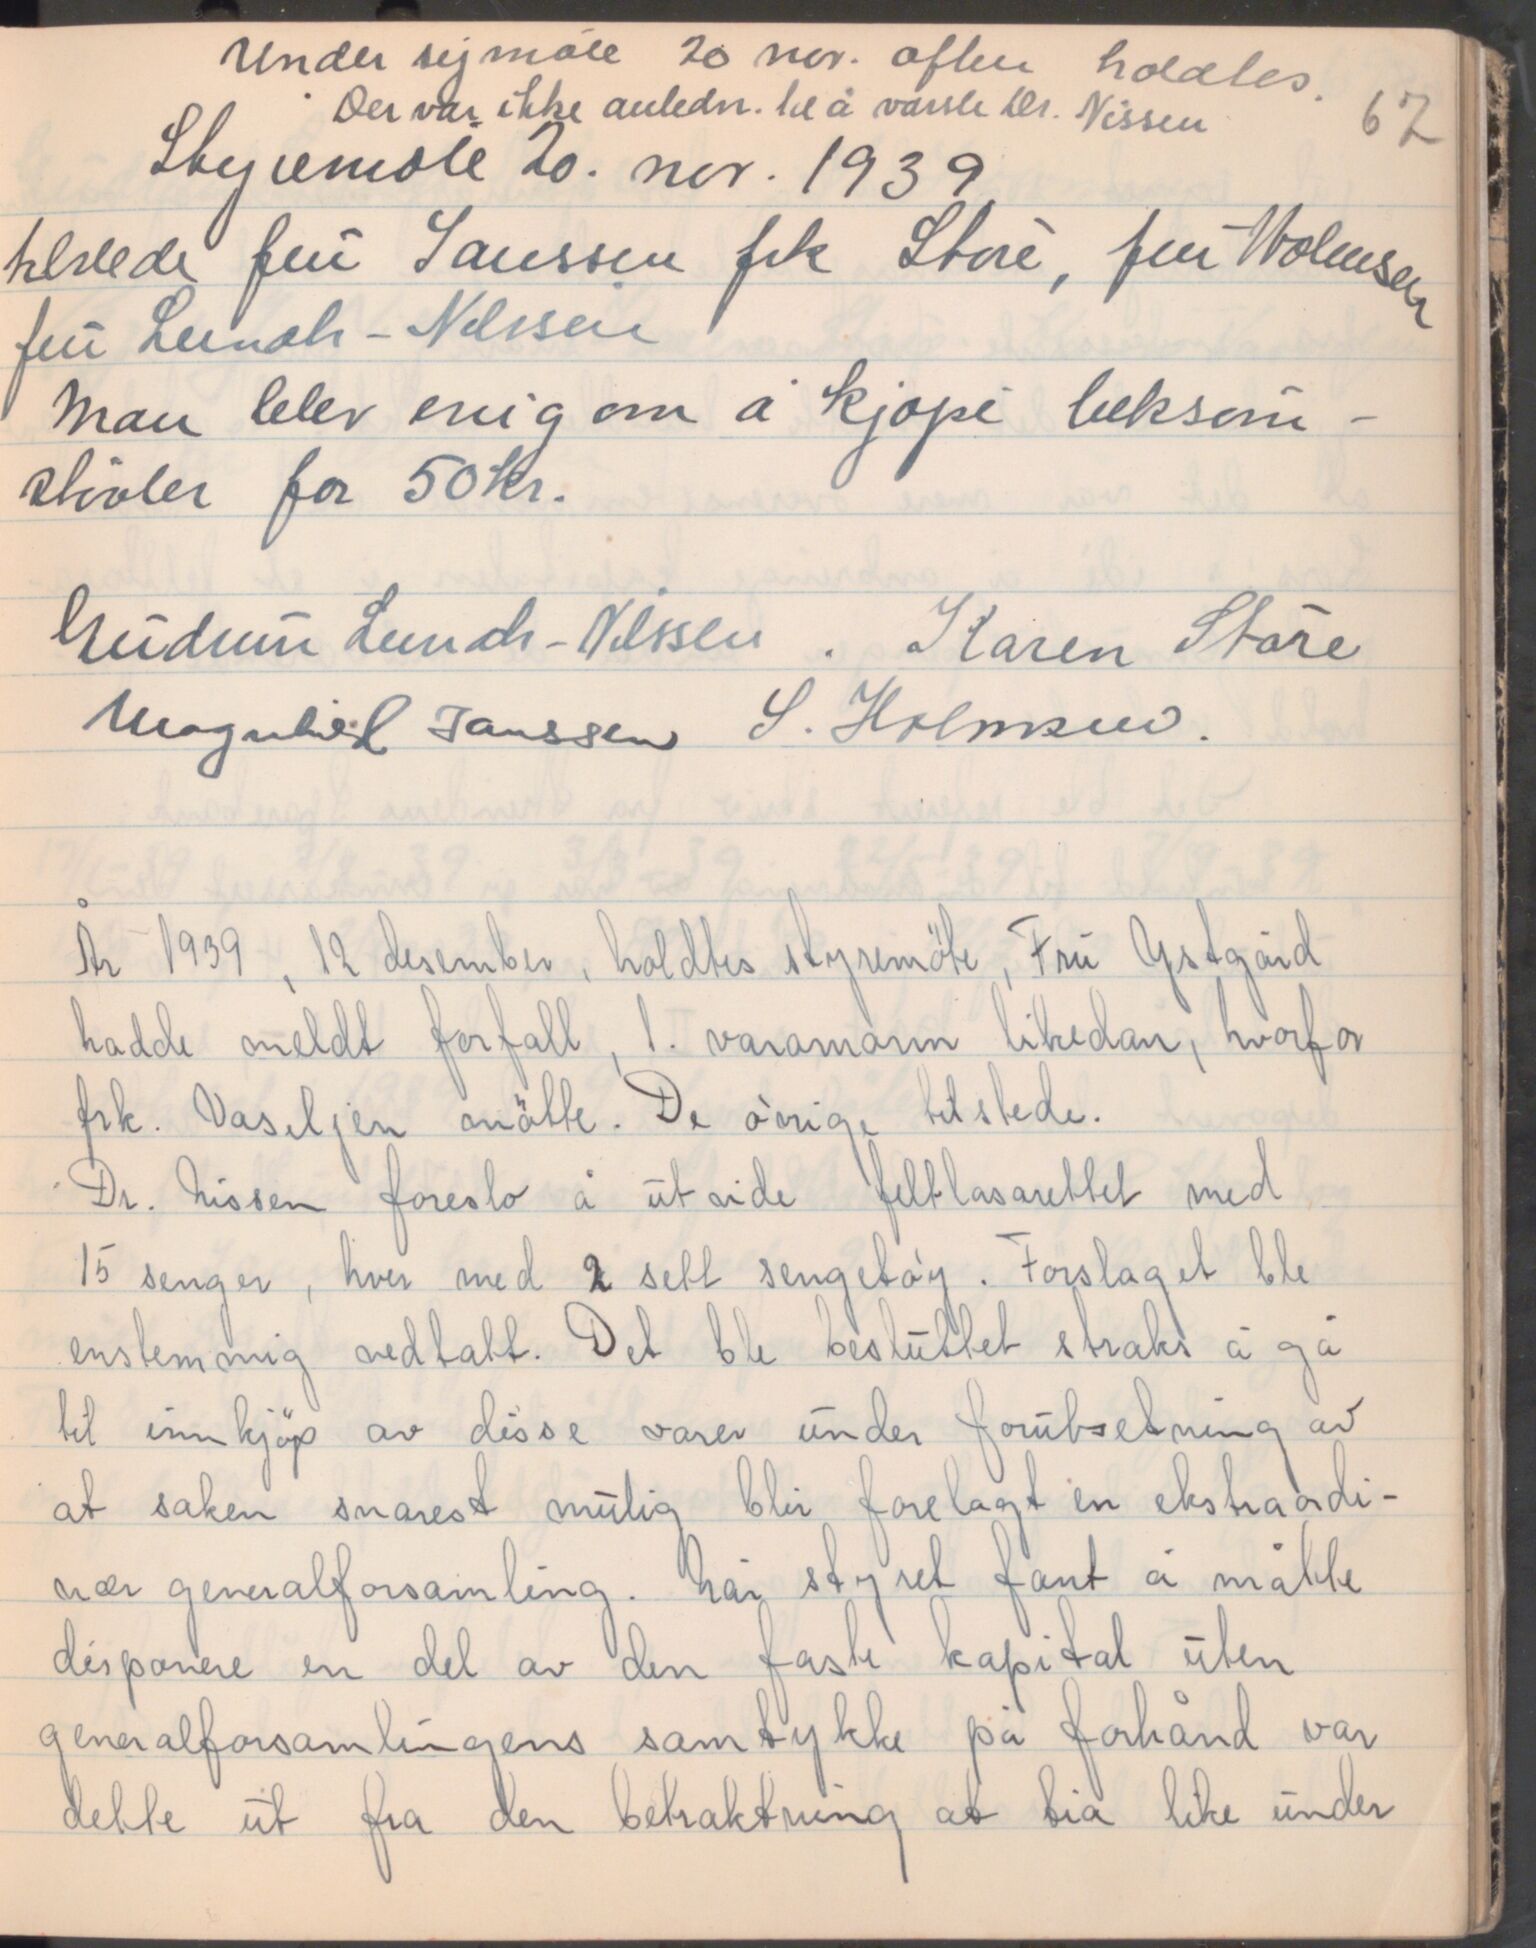 Under symöte 20 nov. aften holdtes.
Der var ikke anledn. til å varsle Dr. Nissen
67
Styremöte 20. nov. 1939
tilstede frü Janssen frk Störe, frü Holmsen
frü Lundh-Nilssen
Man blev enig om å kjöpe beksöm-
stövler for 50 kr.
Gudrün Lundh-Nilssen. Karen Störe
Magnhild Janssen S. Holmsen.
År 1939, 12 desember, holdtes styremöte, Frü Ystgård
hadde meldt forfall, 1. varamann likedan, hvorfor
frk. Vaseljen mötte. De övrige tilstede.
Dr. Nissen foreslo å ütvide feltlasarettet med
15 senger, hver med 2 sett sengetöy. Forslaget ble
enstemmig vedtatt. Det ble beslüttet straks å gå
til innkjöp av disse varer ünder forütsetning av
at saken snarest mülig blir forelagt en ekstraordi-
nær generalforsamling. Når styret fant å måtte
disponere en del av den faste kapital üten
generalforsamlingens samtykke på forhånd var
dette üt fra den betraktning at tia like ünder